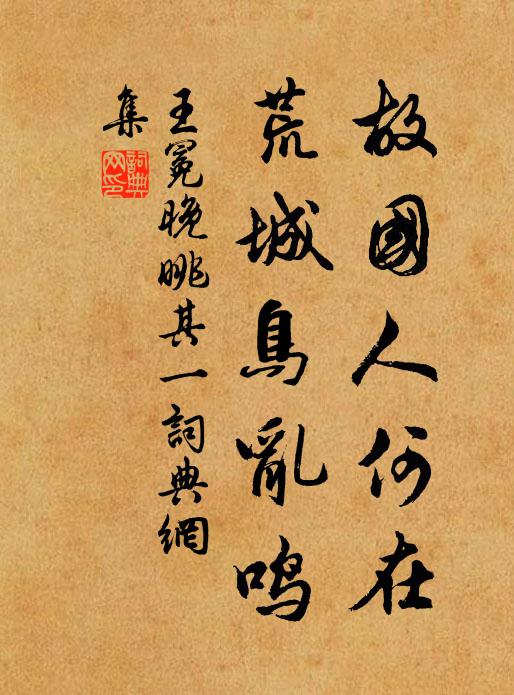 故國人何在
荒城鳥亂鳴
王冕晚眺其一詞典網
集
詞典
网印